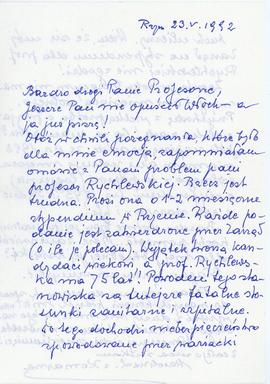 Rzym 23.V.1992
Bardzo drogi Panie Profesorze,
Jeszcze Pan nie opuścił Włoch – a
ja już piszę!
Otóż w chwili pożegnania, które było
dla mnie emocją, zapomniałam
omówić z Panem problem pani
profesor Rychlewskiej. Rzecz jest
trudna. Prosi ona o 1-2 miesięczne
stypendium w Rzymie. Każde po-
danie jest zatwierdzone przez Zarząd
(o ile je polecam). Wyjątek tworzą kan-
dydaci wiekowi a prof. Rychlews-
ka ma 75 lat!! Powodem tego sta-
nowiska są tutejsze fatalne sto-
sunki sanitarne i szpitalne.
Do tego dochodzi niebezpieczeństwo
spowodowane przez wariacki